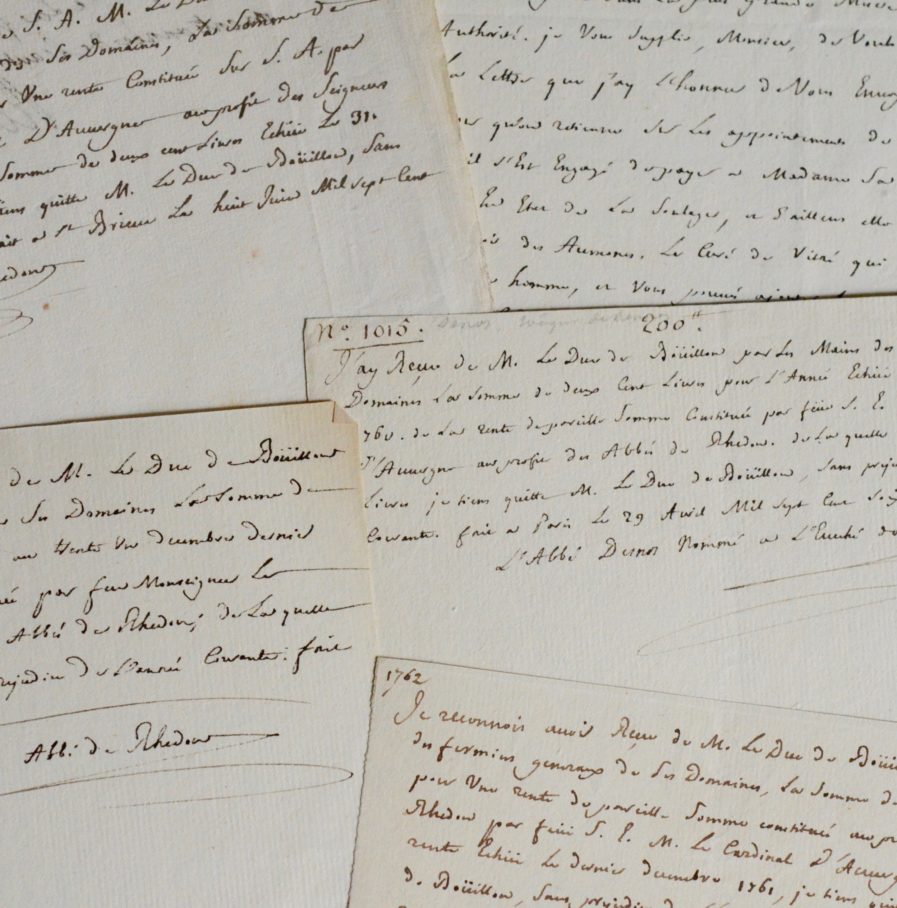 S. A. M. Le Duc
de Ses Domaines, La Somme de
Une rente Constituée Sur S. A. par
D'Auvergne au profit des Seigneurs
Somme de deux cent Livres Echüe Le 31.
tiens quitte M. Le Duc de Boüillon, Sans
fait a St Brieuc Le huit Juin Mil Sept Cent
Authorité. je Vous Supplie, Monsieur, de Vouloir
La Lettre que j'ay l'honneur de Vous
qu'on retienne Sur Les appointements de
il s'Est Engagé de payer a Madame Sa
Etat de La Soulager, et d'ailleurs elle
des Aumones. Le Curé de Vitré qui
homme, et Vous pouvés
No. 1015. 200tt.
J'ay Reçu de M. Le Duc de Boüillon par Les Mains des
Domaines La Somme de deux Cent Livres pour L'Année Echüe
de La rente de pareille Somme Constituée par feüe S. E.
D'Auvergne au profit des Abbés de Rhedon. de Laquelle
Livres je tiens quitte M. Le Duc de Boüillon, Sans
Courante. fait a Paris Le 29 Avril Mil Sept Cent
L'Abbé Desnos Nommé a L'Evêché de
de M. Le Duc de Boüillon
Ses Domaines La Somme de
au trente Un decembre dernier
par feu Monseigneur Le
Abbé de Rhedon; de Laquelle
de L'année Courante. fait
Abbé de Rhedon
1762
Je reconnois avoir Reçu de M. Le Duc de
des fermiers généraux de Ses Domaines, La Somme de
pour Une rente de pareille Somme constituée au
Rhedon par feüe S. E. M. Le Cardinal D'Auvergne
rente Echüe Le dernier decembre 1761, je tiens
de Boüillon, Sans prejudice de